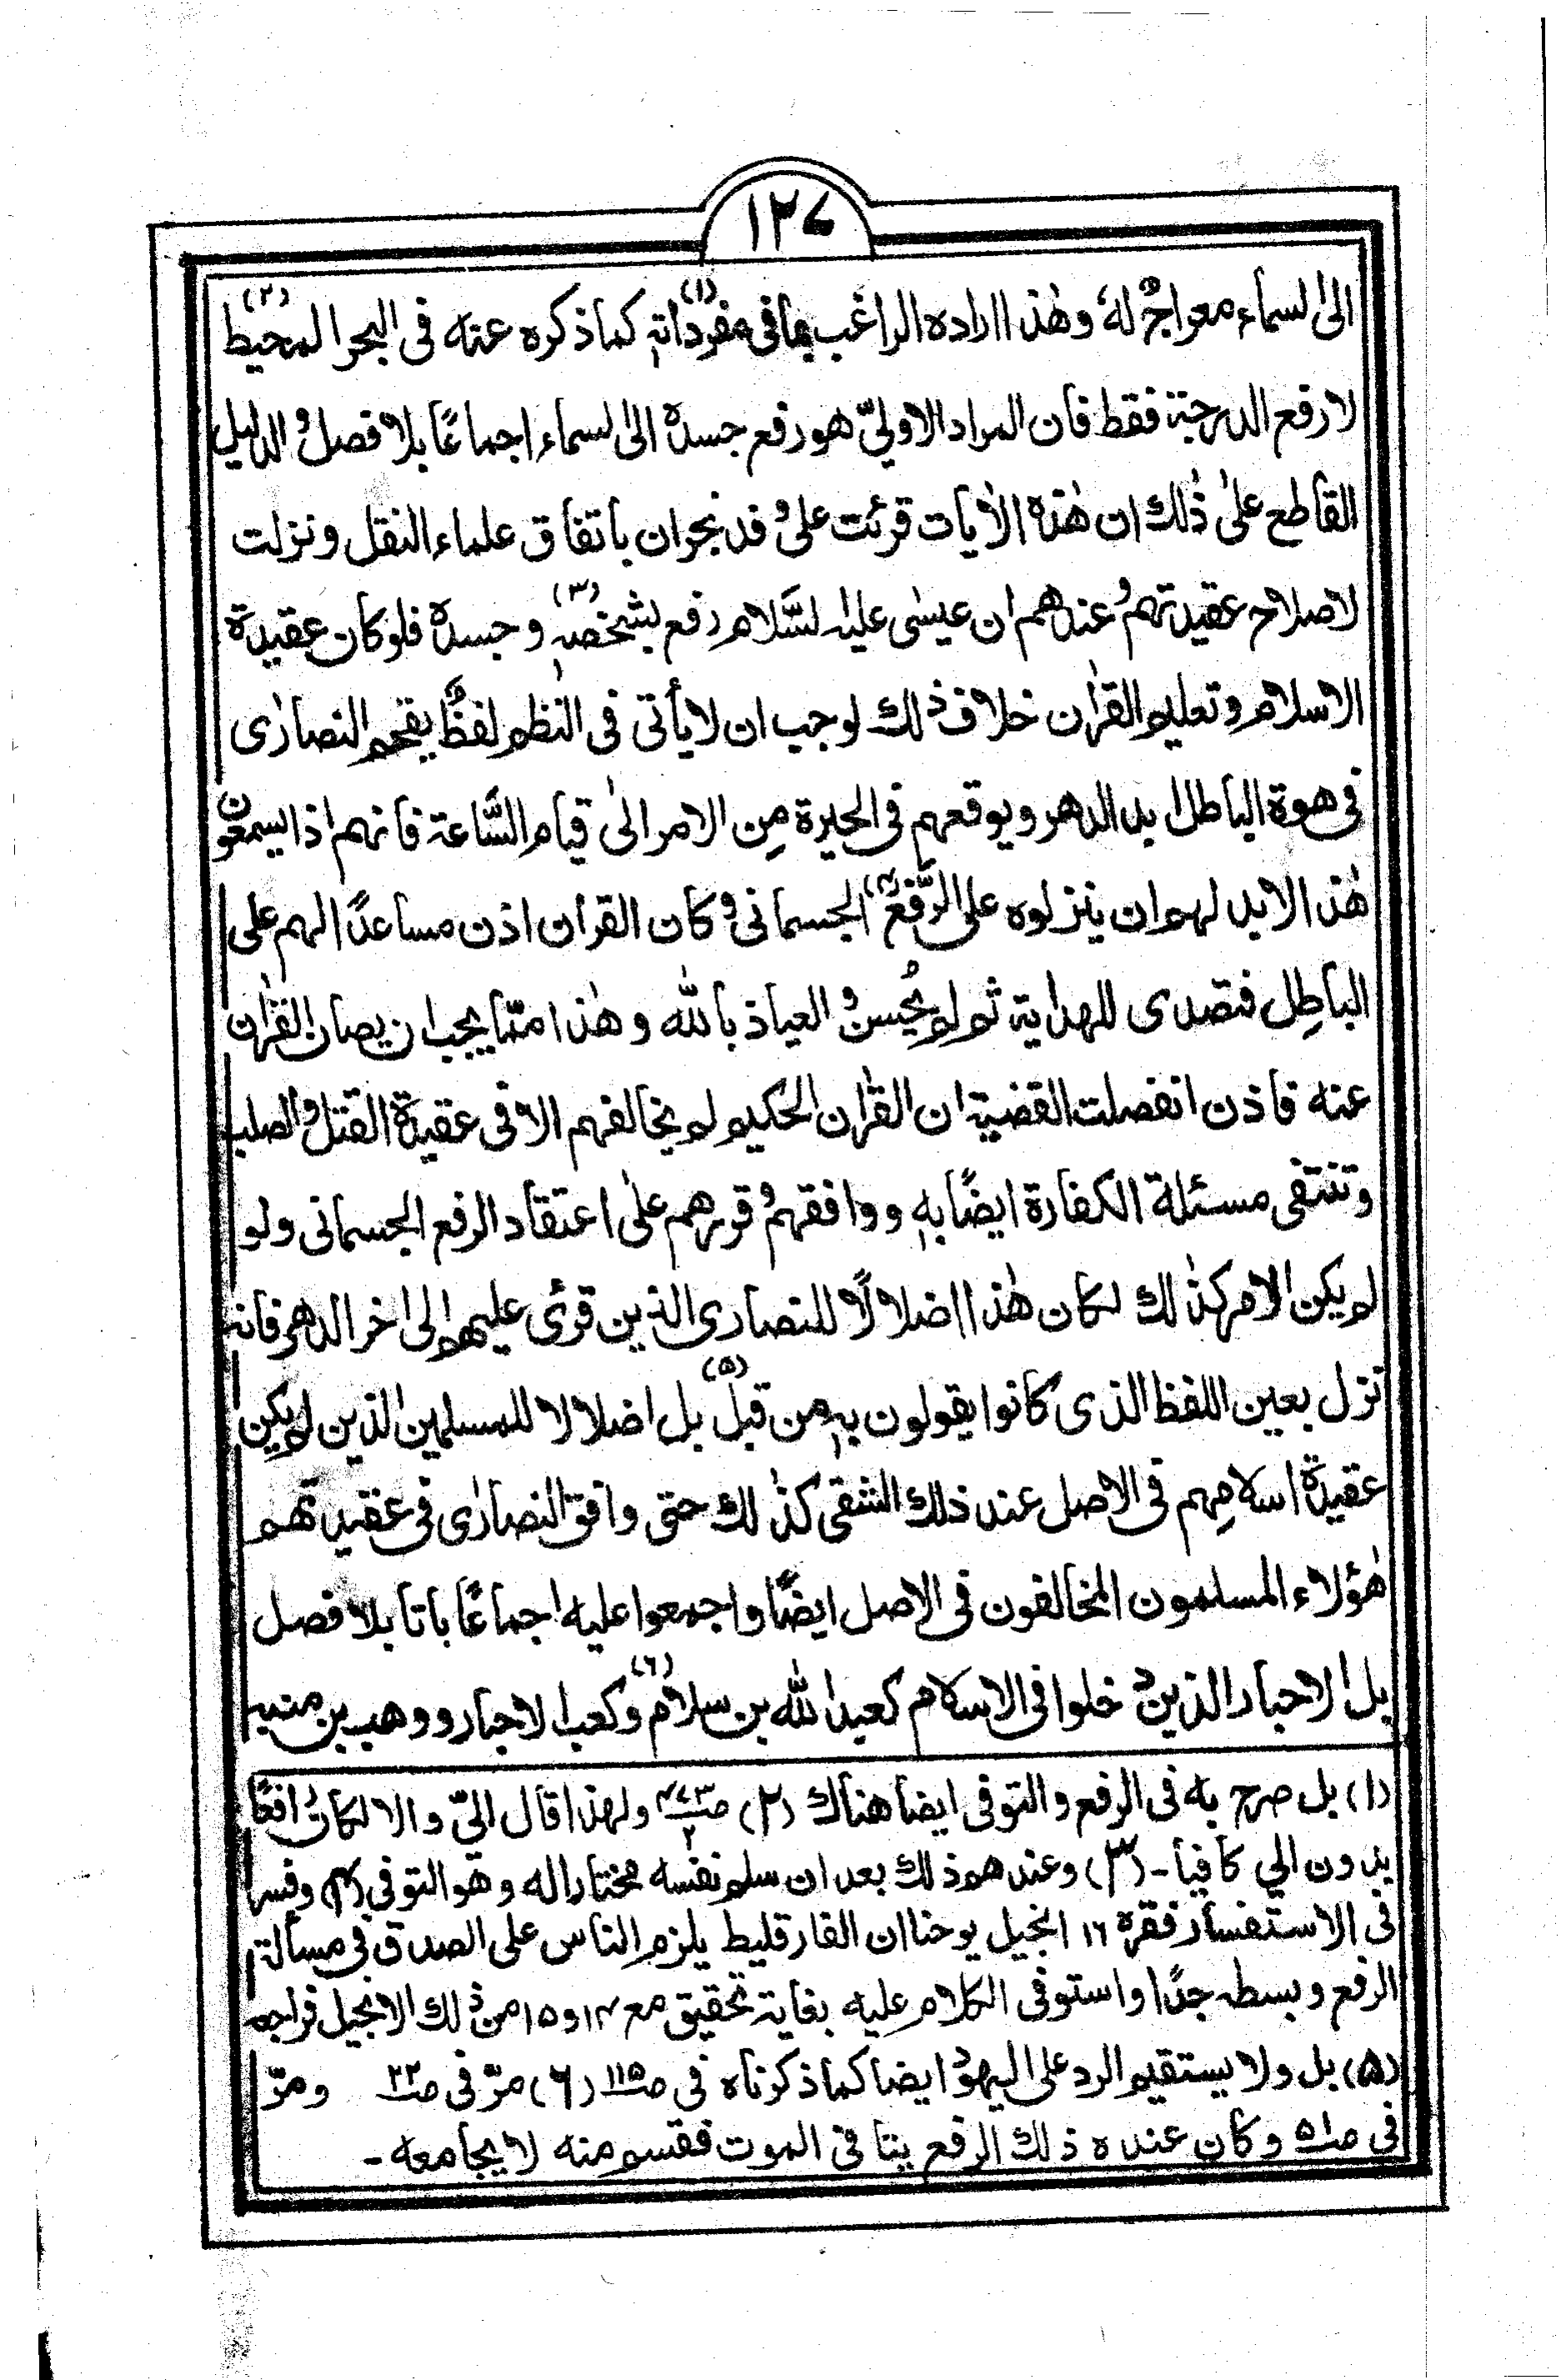 ١٢٧
الى السماء معراجٌ له وهٰذا اراده الراغب بما فى مفرداته (١) كما ذكره عنه فى البحر المحيط (٢)
لا رفع الدرجة فقط فان المراد الاولىّ هو رفع جسده الى السماء اجماعًا بلا فصل و الدليل
القاطع علىٰ ذٰلك ان هٰذه الاٰيات قرئت علىٰ وفد نجران باتفاق علماء النقل ونزلت
لاصلاح عقيدتهم و عندهم ان عيسٰى عليه السَّلام رفع بشخصه (٣) وجسده فلو كان عقيدة
الاسلام وتعليم القرٰان خلاف ذٰلك لوجب ان لا يأتى فى النظم لفظٌ يقحم النصارٰى
فى هوة الباطل ابد الدهر ويوقعهم فى الحيرة مِن الامر الىٰ قيام السَّاعة فانهم اذا يسمعون
هٰذا لابد لهم ان ينزلوه على الرَّفع (٤) الجسمانى و كان القرآن اذن مساعدًا لهم على
الباطِل فتصدى للهداية ثم لم يُحسن و العياذ بالله وهٰذا ممّا يجب ان يصان القرٰان
عنه فاذن انفصلت القضية ان القرٰان الحكيم لم يخالفهم الا فى عقيدة القتل و الصلب
وتنتفى مسئلة الكفارة ايضًا به ووافقهم و قررهم علىٰ اعتقاد الرفع الجسمانى ولو
لم يكن الامر كذٰلك لكان هٰذا اضلالًا للنصارى الذين قرئ عليهم الى اخر الدهر فانه
نزل بعين اللفظ الذى كانوا يقولون به من قبل (٥) بل اضلالا للمسلمين الذين لم يكن
عقيدة اسلامِهم فى الاصل عند ذلك الشقى كذٰلك حتى وافق النصارٰى فى عقيدتهم
هٰؤلاء المسلمون المخالفون فى الاصل ايضًا واجمعوا عليه اجماعًا باتا بلا فصل
بل الاحبار الذين دخلوا فى الاسلام كعبد الله بن سلام (٦) وكعب الاحبار ووهب بن منبه
(١) بل صرح به فى الرفع والتوفى ايضا هناك (٢) صـ ٤٧٣ ٢ ولهذا قال الىّ والا لكان رافعًا
بدون الى كافيا - (٣) وعندهم ذلك بعد ان سلم نفسه مختارا له وهو التوفى (٤) وفسر
فى الاستفسار فقره ١٦ انجيل يوحنا ان الفارقليط يلزم الناس على الصدق فى مسألة
الرفع وبسطه جدًا واستوفى الكلام عليه بغاية تحقيق مع ١٤ و ١٥ من ذلك الانجيل فراجعه
(٥) بل ولا يستقيم الرد على اليهود ايضا كما ذكرناه فى صـ ١١٥ (٦) مرّ فى صـ ٣٣ ومرّ
فى صـ ٥١ وكان عنده ذلك الرفع ينافى الموت فقسم منه لا يجامعه -